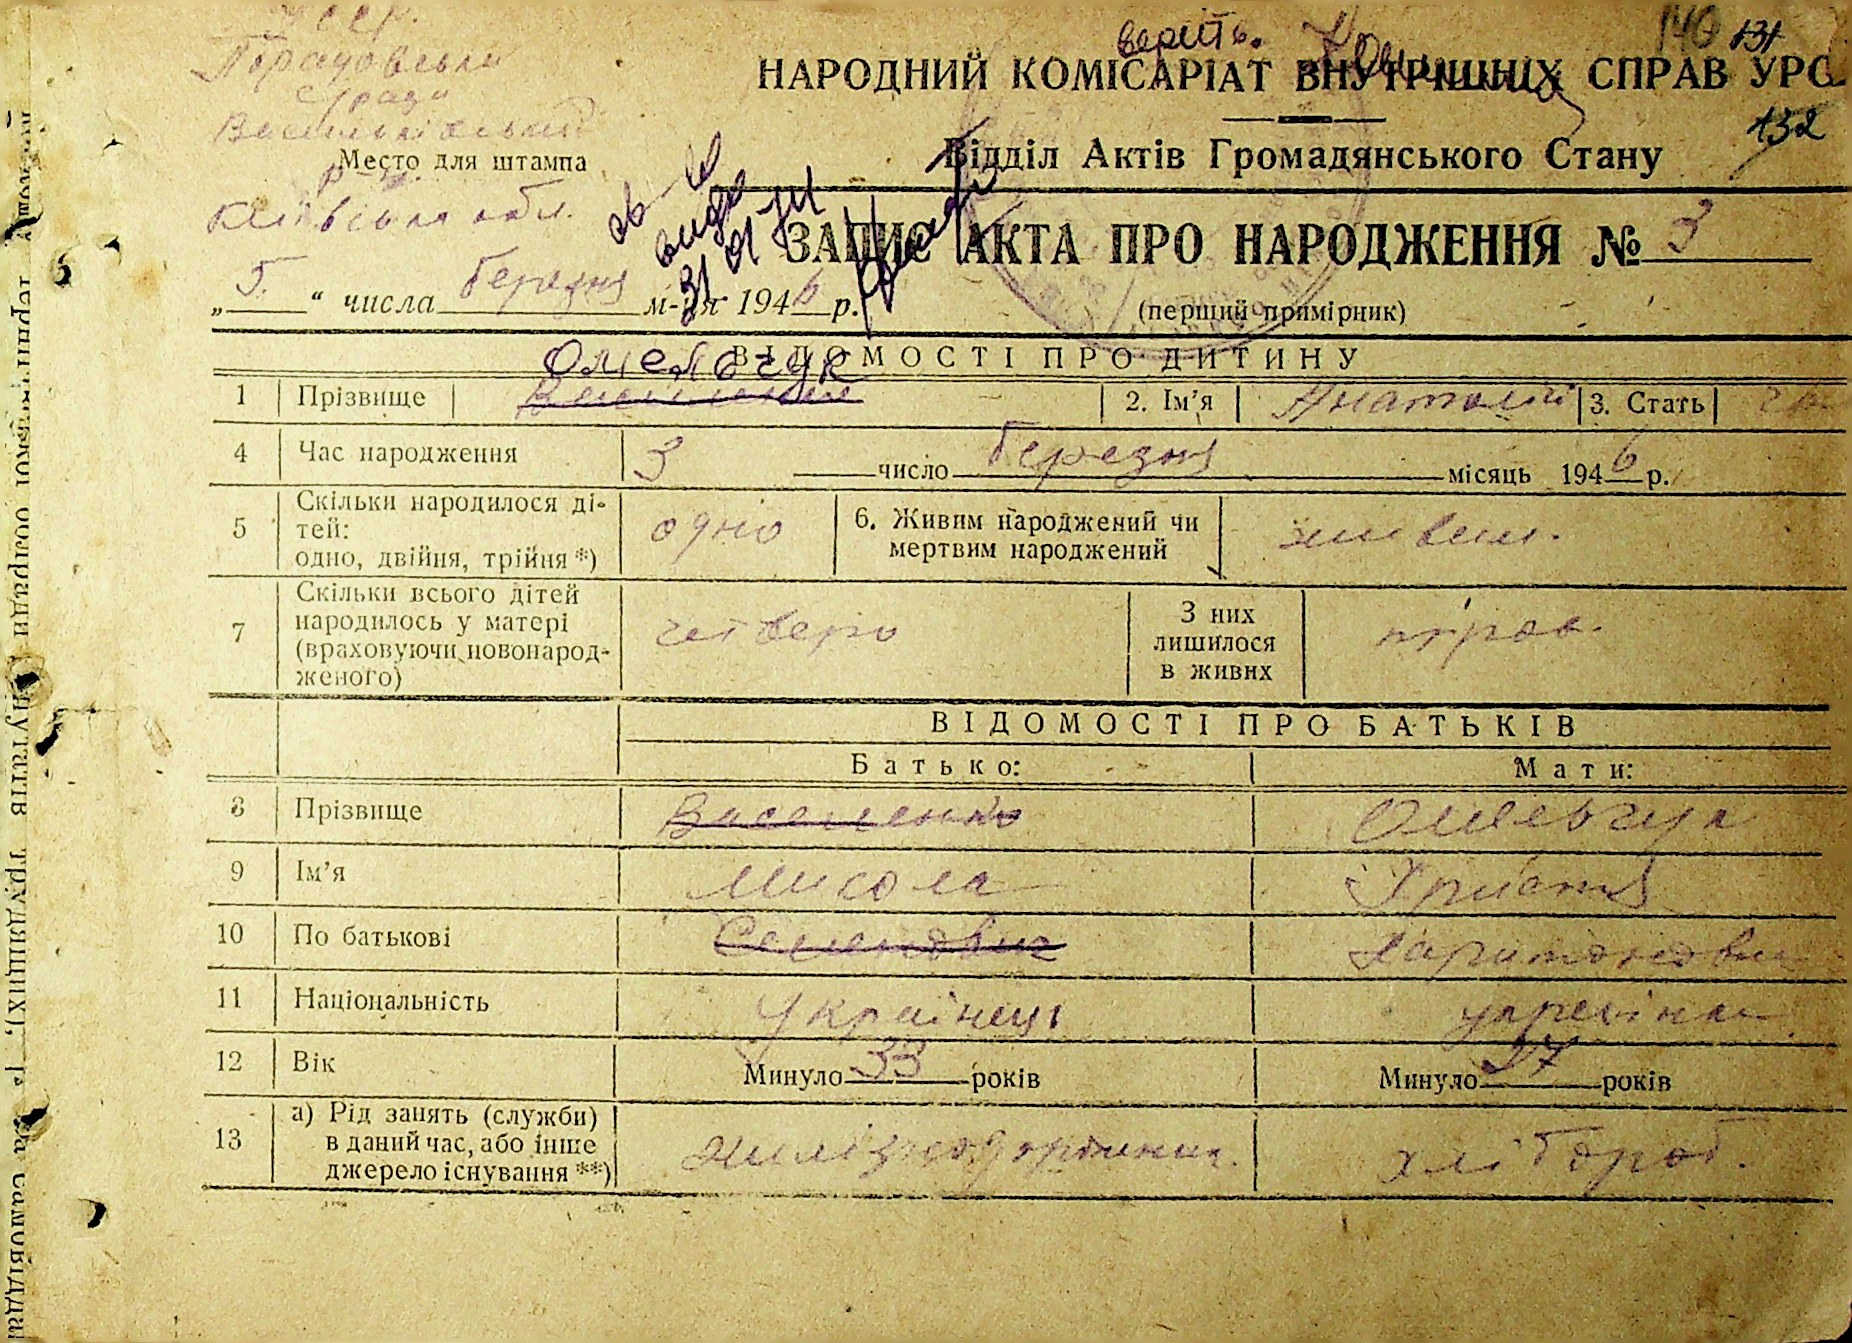 верить.
140 131
НАРОДНИЙ КОМІСАРІАТ ВНУТРІШНІХ СПРАВ УРС
132
Порадовська
с/рада
Васильківський
Место для штампа
р-н.
Київська обл.
Відділ Актів Громадянського Стану
ЗАПИС АКТА ПРО НАРОДЖЕННЯ № 3
„ 5. “ числа березня м-ця 1946 р.
(перший примірник)
ВІДОМОСТІ ПРО ДИТИНУ
Омельчук
1 Прізвище Василенко 2. Ім’я Анатолій 3. Стать чол
4 Час народження 3 число березня місяць 1946 р.
5 Скільки народилося ді-
тей:
одно, двійня, трійня *) одно 6. Живим народжений чи
мертвим народжений живим.
7 Скільки всього дітей
народилось у матері
(враховуючи новонарод-
женого) четверо З них
лишилося
в живих троє.
ВІДОМОСТІ ПРО БАТЬКІВ
Батько: Мати:
8 Прізвище Василенко Омельчук
9 Ім’я Микола Христя
10 По батькові Семенович Харитоновна
11 Національність Українець українка
12 Вік Минуло 33 років Минуло 27 років
13 а) Рід занять (служби)
в даний час, або інше
джерело існування **) хлібороб.